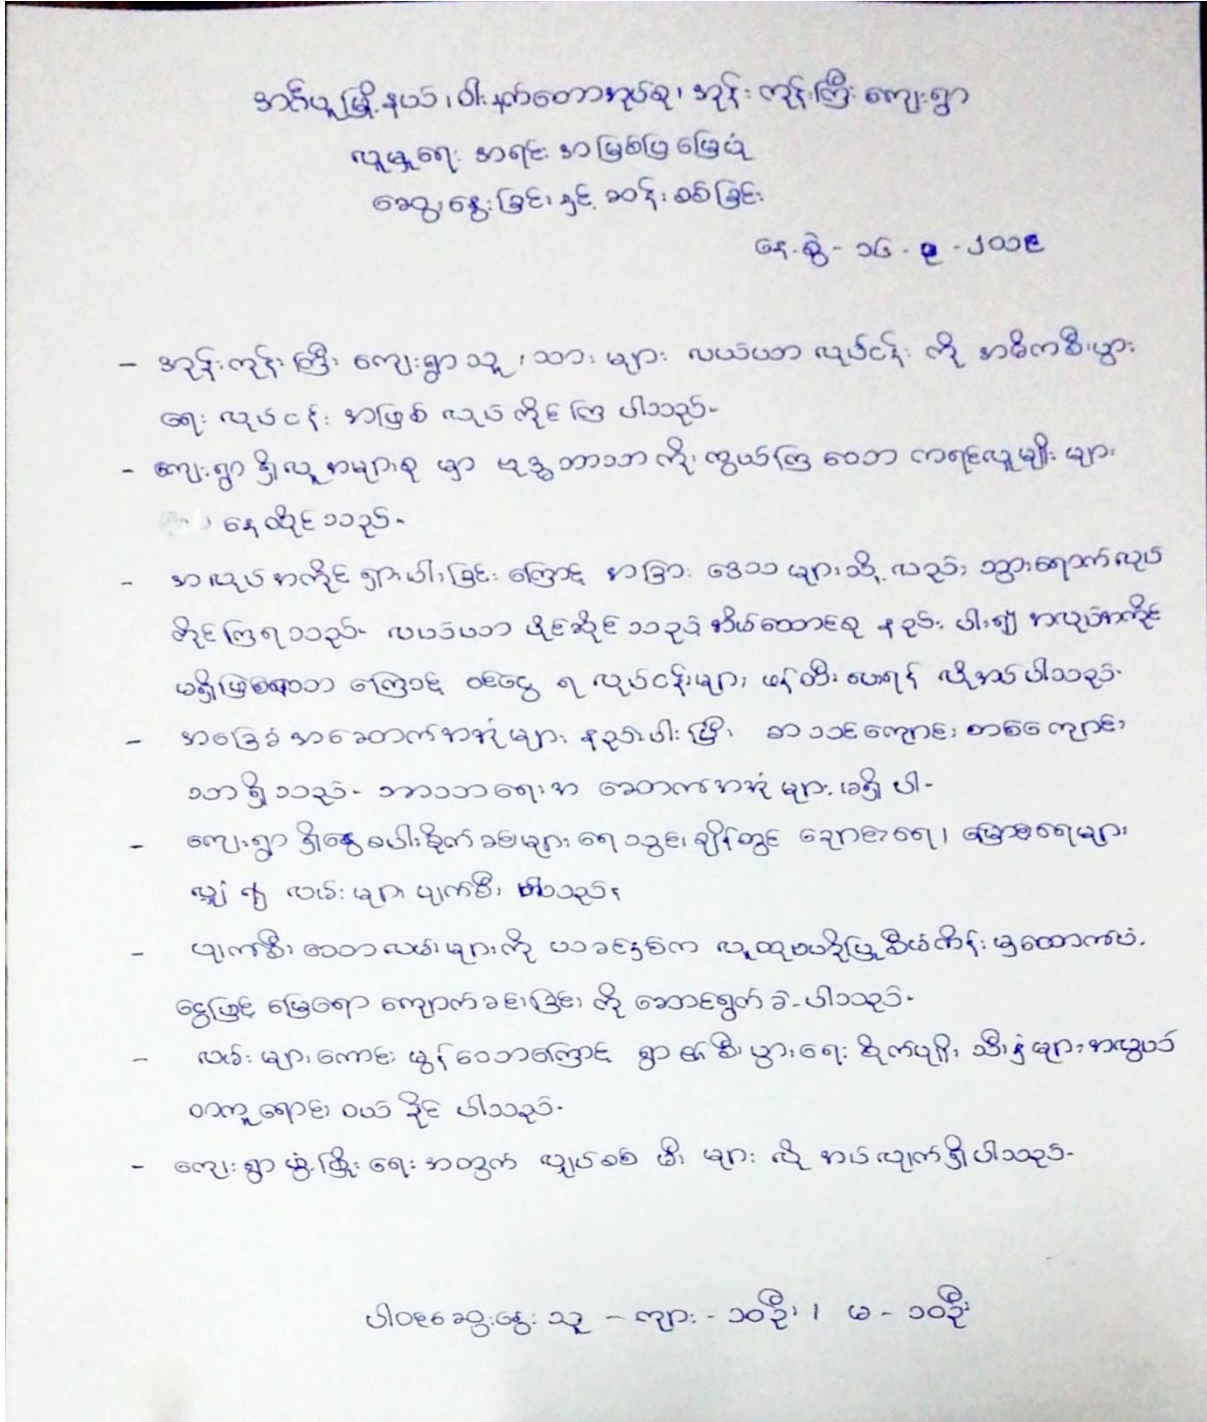 အင်္ဂပူမြို့နယ်၊ ဝါးနက်တောအုပ်စု၊ အုန်းကုန်းကြီးကျေးရွာ
လူမှုရေး အရင်းအမြစ်ပြမြေပုံ
ဆွေးနွေးခြင်းနှင့် ဆန်းစစ်ခြင်း
နေ့စွဲ - ၁၆ - ၉ - ၂၀၁၉
- အုန်းကုန်းကြီး ကျေးရွာသူ၊ သားများ လယ်ယာလုပ်ငန်း ကို အဓိကစီးပွား
ရေး လုပ်ငန်း အဖြစ် လုပ်ကိုင်ကြပါသည်။
- ကျေးရွာရှိလူအများစု မှာ ဗုဒ္ဓဘာသာကိုးကွယ်ကြသော ကရင်လူမျိုးများ
နေထိုင်သည်။
- အလုပ်အကိုင် ရှားပါးခြင်းကြောင့် အခြားဒေသများသို့လည်း သွားရောက်လုပ်
ကိုင်ကြရသည်။ လယ်ယာ ပိုင်ဆိုင်သည့်အိမ်ထောင်စု နည်းပါး၍ အလုပ်အကိုင်
မရှိဖြစ်ရသော ကြောင့် ဝင်ငွေ ရ လုပ်ငန်းများ ဖန်တီးပေးရန် လိုအပ်ပါသည်။
- အခြေခံအဆောက်အအုံများ နည်းပါးပြီး စာသင်ကျောင်း တစ်ကျောင်း
သာရှိသည်။ ဘာသာရေးအဆောက်အအုံများ မရှိပါ။
- ကျေးရွာရှိနွေစပါးစိုက်ခင်းများရေသွင်းချိန်တွင် ချောင်းရေ၊ မြောင်းရေများ
လျှံ၍ လမ်းများပျက်စီးပါသည်။
- ပျက်စီးသောလမ်းများကို ယခင်နှစ်က လူထုဗဟိုပြုစီမံကိန်းမှထောက်ပံ့
ငွေဖြင့် မြေရော ကျောက်ခင်းခြင်း ကို ဆောင်ရွက်ခဲ့ပါသည်။
- လမ်းများကောင်းမွန်သောကြောင့် ရွာ၏စီးပွားရေး စိုက်ပျိုးသီးနှံများအလွယ်
တကူရောင်းဝယ်နိုင်ပါသည်။
- ကျေးရွာဖွံ့ဖြိုးရေးအတွက် လျှပ်စစ်မီးများ လိုအပ်လျက်ရှိပါသည်။
ပါဝင်ဆွေးနွေးသူ - ကျား - ၁၀ဦး၊ မ - ၁၀ဦး